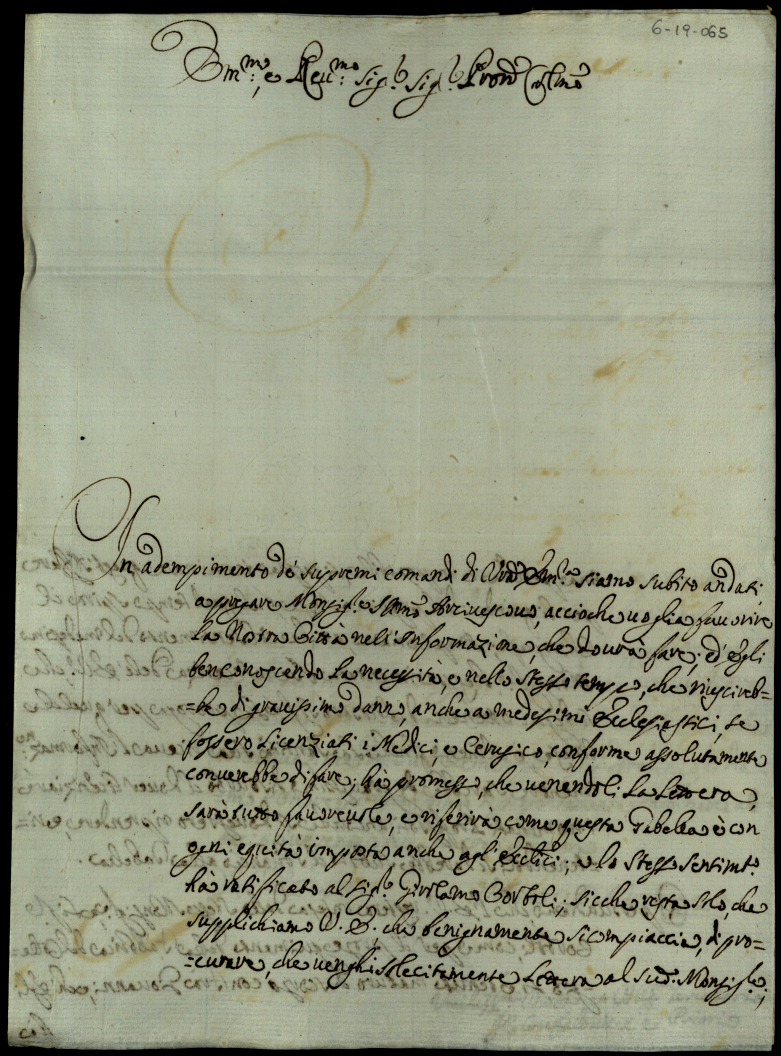 6-19-065
Em.mo e Rev.mo Sig.r Sig.r Pron.e Col.mo
In adempimento de supremi comandi di Vrã Em.za siamo subito andati
a pregare Monsig.e Arcivescovo, accioche voglia favorire
la Nostra Città nell'Informazione, che dovrà fare; ed egli
ben conoscendo la necessità, e nello stesso tempo, che riuscireb=
=be di gravissimo danno, anche a medesimi Ecclesiastici, se
fossero licenziati i Medici, e Cerusico, conforme assolutamente
converebbe di fare; hà promesso, che venendoli la lettera,
sarà tutto favorevole, e riferirà, come questa Gabella è con
ogni equità imposta anche agl'Ecclici; e lo stesso sentim.to
hà ratificato al Sig.r Girolamo; sicche resta solo, che
supplichiamo V. E. che benignamente si compiaccia, di pro=
=curare, che venghi sollecitamente lettera al sud.o Monsig.e;